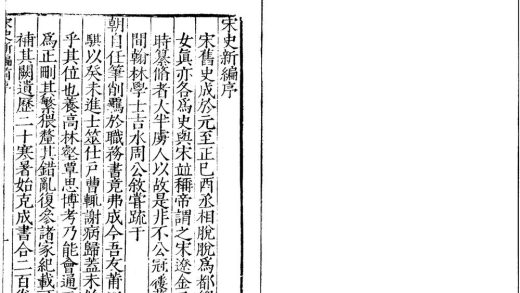 宋史新編序
宋舊史成於元至正己酉丞相脫脫為都
女真亦各為史與宋並稱帝謂之宋遼金
時纂脩者大半虜人以故是非不公冠
間翰林學士吉水周公敘嘗疏于
朝自任筆削羈於職務書竟弗成今吾友莆
騏以癸未進士筮仕戶曹輒謝病歸蓋未
乎其位也養高林壑覃思博考乃能會通
為正刪其繁猥釐其錯亂復參諸家紀載
補其闕遺歷二十寒暑始克成書合二百
宋史新編